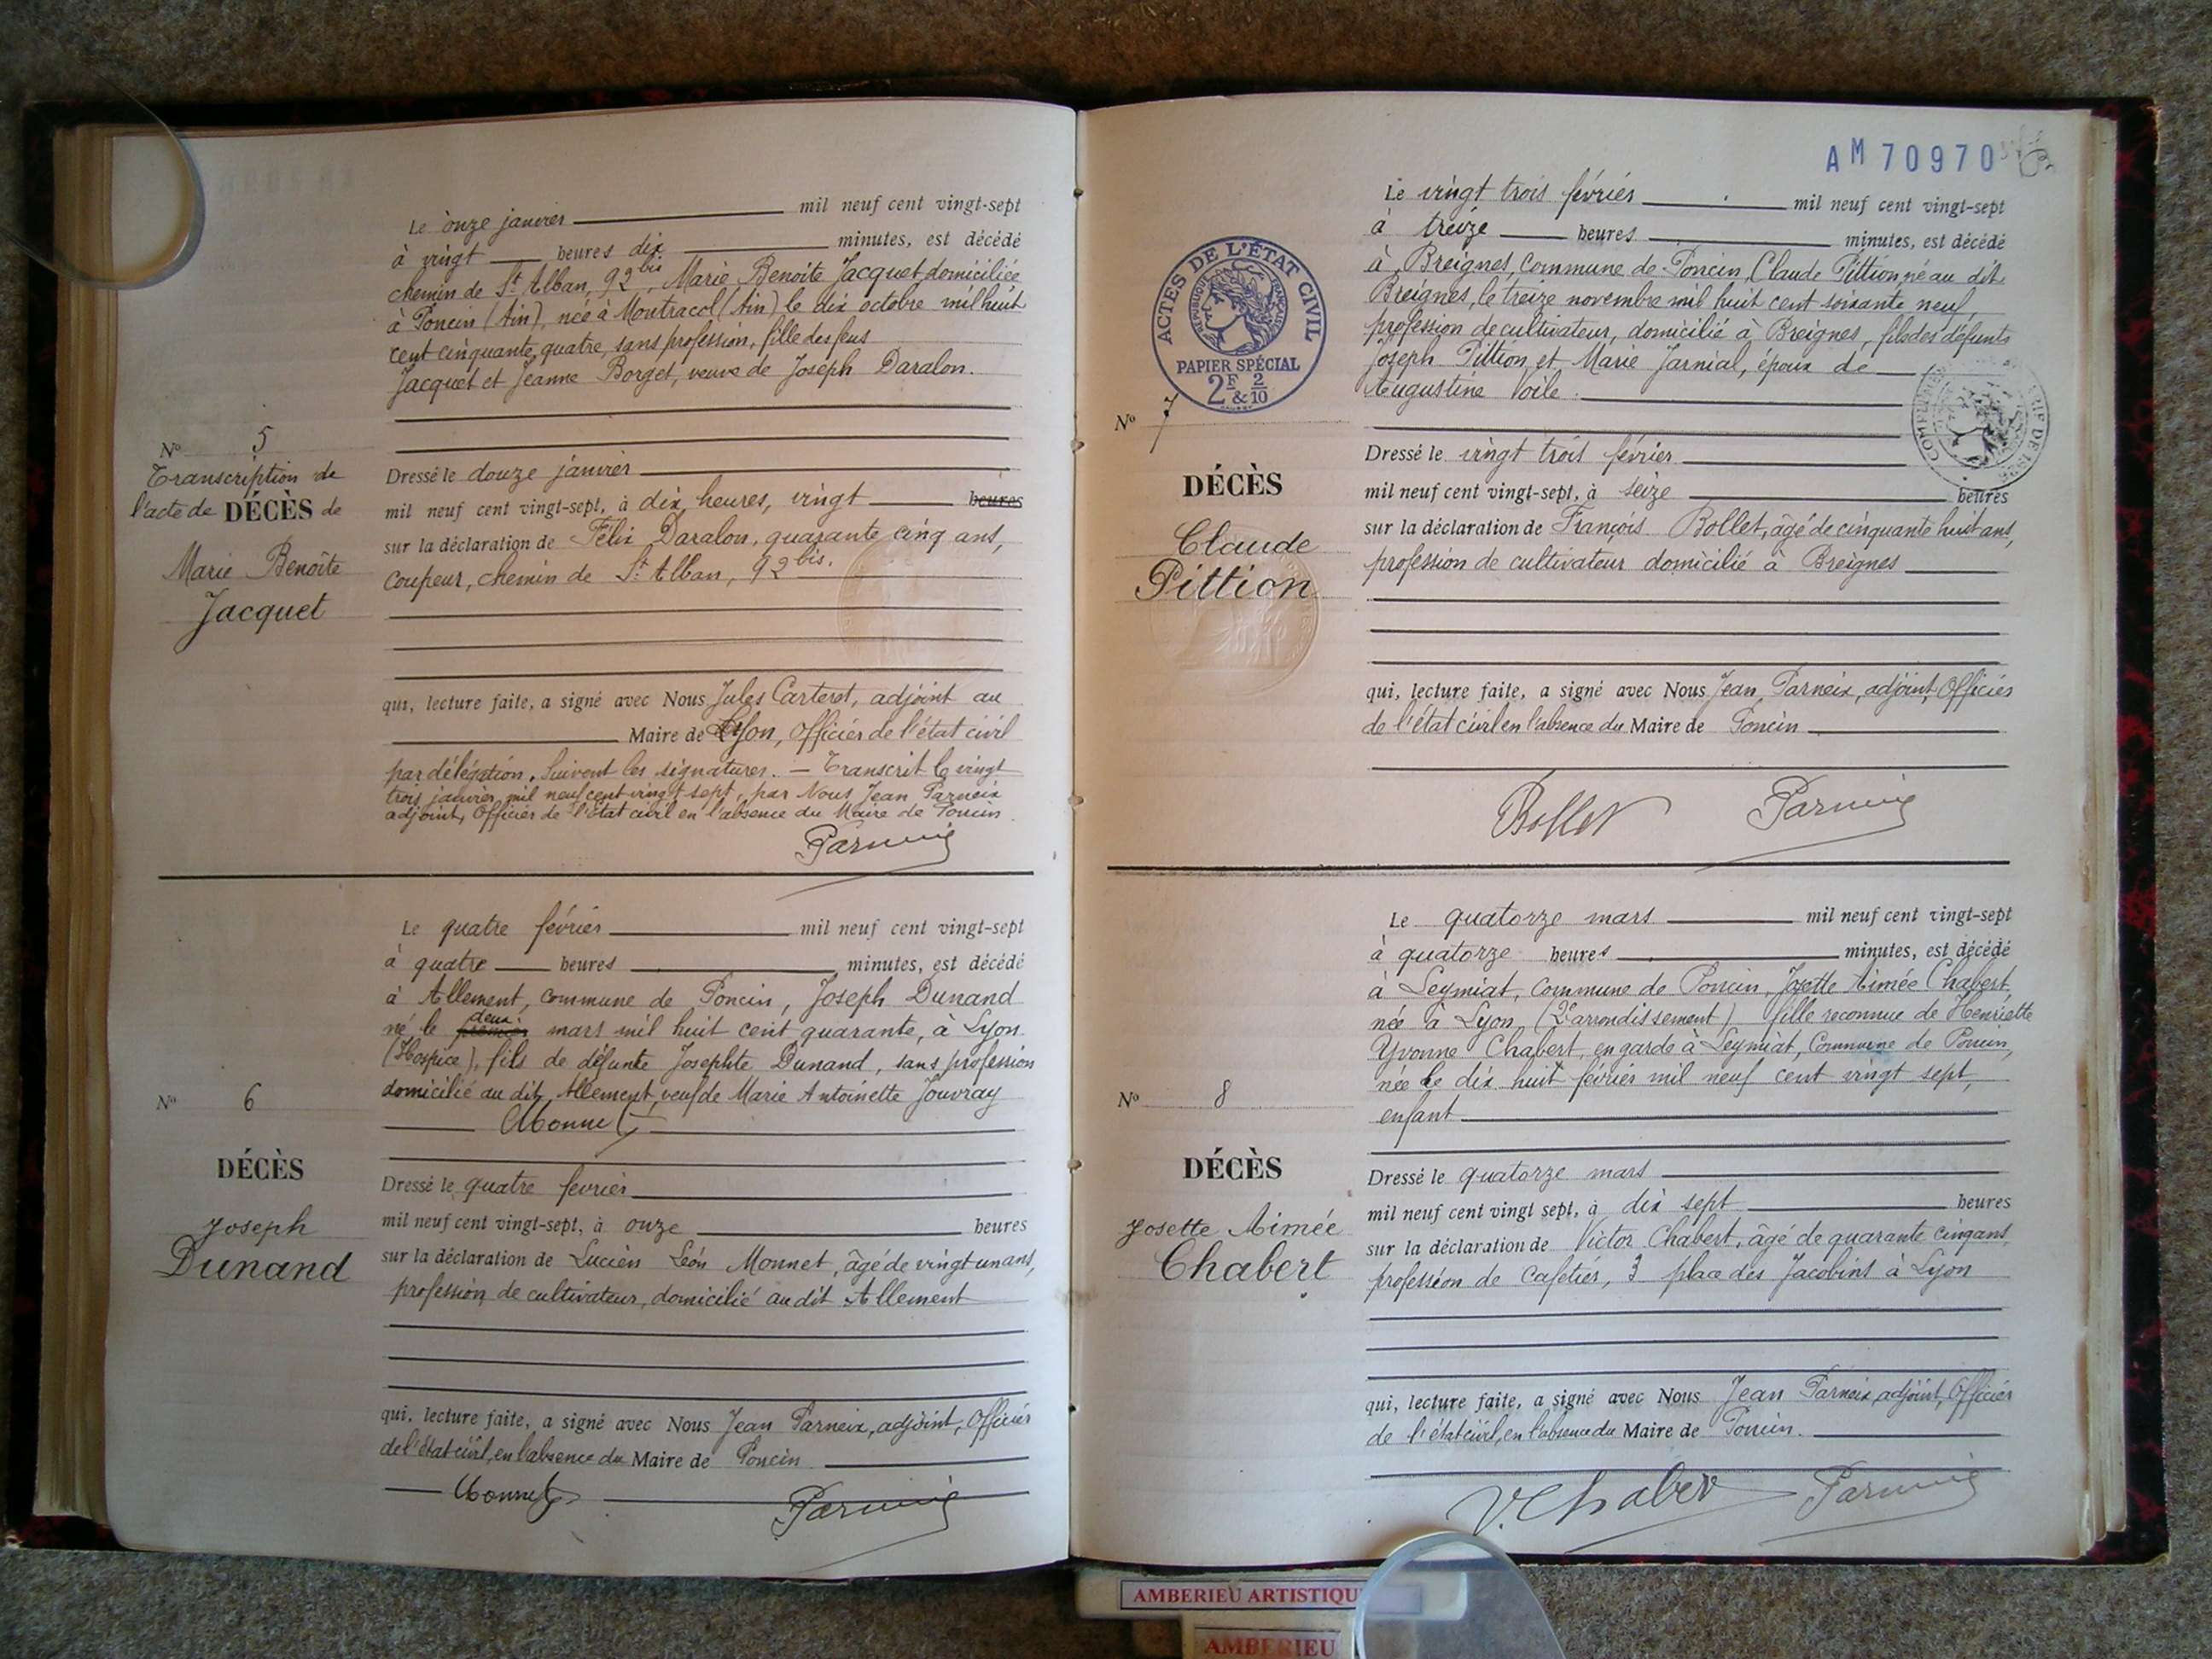 Le onze janvier mil neuf cent vingt-sept
à vingt heures dix minutes, est décédé
chemin de St Alban, 92 bis, Marie Benoite Jacquet domiciliée
à Poncin (Ain), née à Montracol (Ain) le dix octobre mil huit
cent cinquante quatre, sans profession, fille des feus
Jacquet et Jeanne Borget, veuve de Joseph Daralon.
No 5
Transcription de
l'acte de DÉCÈS de
Marie Benoîte
Jacquet
Dressé le douze janvier
mil neuf cent vingt-sept, à dix heures, vingt heures
sur la déclaration de Félix Daralon, quarante cinq ans,
coupeur, chemin de St Alban, 92 bis.
qui, lecture faite, a signé avec Nous Jules Carteret, adjoint au
Maire de Lyon, Officier de l'état civil
par délégation. Suivent les signatures. — Transcrit le vingt
trois janvier mil neuf cent vingt sept, par Nous Jean Parneix
adjoint, Officier de l'état civil en l'absence du Maire de Poncin.
Parneix
Le quatre février mil neuf cent vingt-sept
à quatre heures minutes, est décédé
à Allement, commune de Poncin, Joseph Dunand
deux
né le premier mars mil huit cent quarante, à Lyon
(Hospice), fils de défunte Josephte Dunand, sans profession
domicilié au dit Allement, veuf de Marie Antoinette Jouvray
Monnet
No 6
DÉCÈS
Joseph
Dunand
Dressé le quatre fevrier
mil neuf cent vingt-sept, à onze heures
sur la déclaration de Lucien Léon Monnet, âgé de vingt un ans,
profession de cultivateur, domicilié au dit Allement
qui, lecture faite, a signé avec Nous Jean Parneix, adjoint, Officier
de l'état civil, en l'absence du Maire de Poncin
Monnet Parneix
AM 70970
Le vingt trois février mil neuf cent vingt-sept
à treize heures minutes, est décédé
à Breignes, Commune de Poncin, Claude Pittion, né au dit
Breignes, le treize novembre mil huit cent soixante neuf,
profession de cultivateur, domicilié à Breignes, fils des défunts
Joseph Pittion et Marie Jarnial, époux de
Augustine Voile.
ACTES DE L'ÉTAT CIVIL
RÉPUBLIQUE FRANÇAISE
PAPIER SPÉCIAL
2F & 2/10
No 7
DÉCÈS
Claude
Pittion
Dressé le vingt trois février
mil neuf cent vingt-sept, à seize heures
sur la déclaration de François Bollet, âgé de cinquante huit ans,
profession de cultivateur domicilié à Breignes
qui, lecture faite, a signé avec Nous Jean Parneix, adjoint, Officier
de l'état civil en l'absence du Maire de Poncin
Bollet Parneix
Le quatorze mars mil neuf cent vingt-sept
à quatorze heures minutes, est décédé
à Leymiat, commune de Poncin, Josette Aimée Chabert
née à Lyon (2e arrondissement) fille reconnue de Henriette
Yvonne Chabert, en garde à Leymiat, Commune de Poncin,
née le dix huit février mil neuf cent vingt sept,
enfant
No 8
DÉCÈS
Josette Aimée
Chabert
Dressé le quatorze mars
mil neuf cent vingt sept, à dix sept heures
sur la déclaration de Victor Chabert, âgé de quarante cinq ans,
profession de cafetier, 3 place des Jacobins à Lyon
qui, lecture faite, a signé avec Nous Jean Parneix, adjoint, Officier
de l'état civil, en l'absence du Maire de Poncin.
V. Chaber Parneix
AMBERIEU ARTISTIQU
AMBERIEU